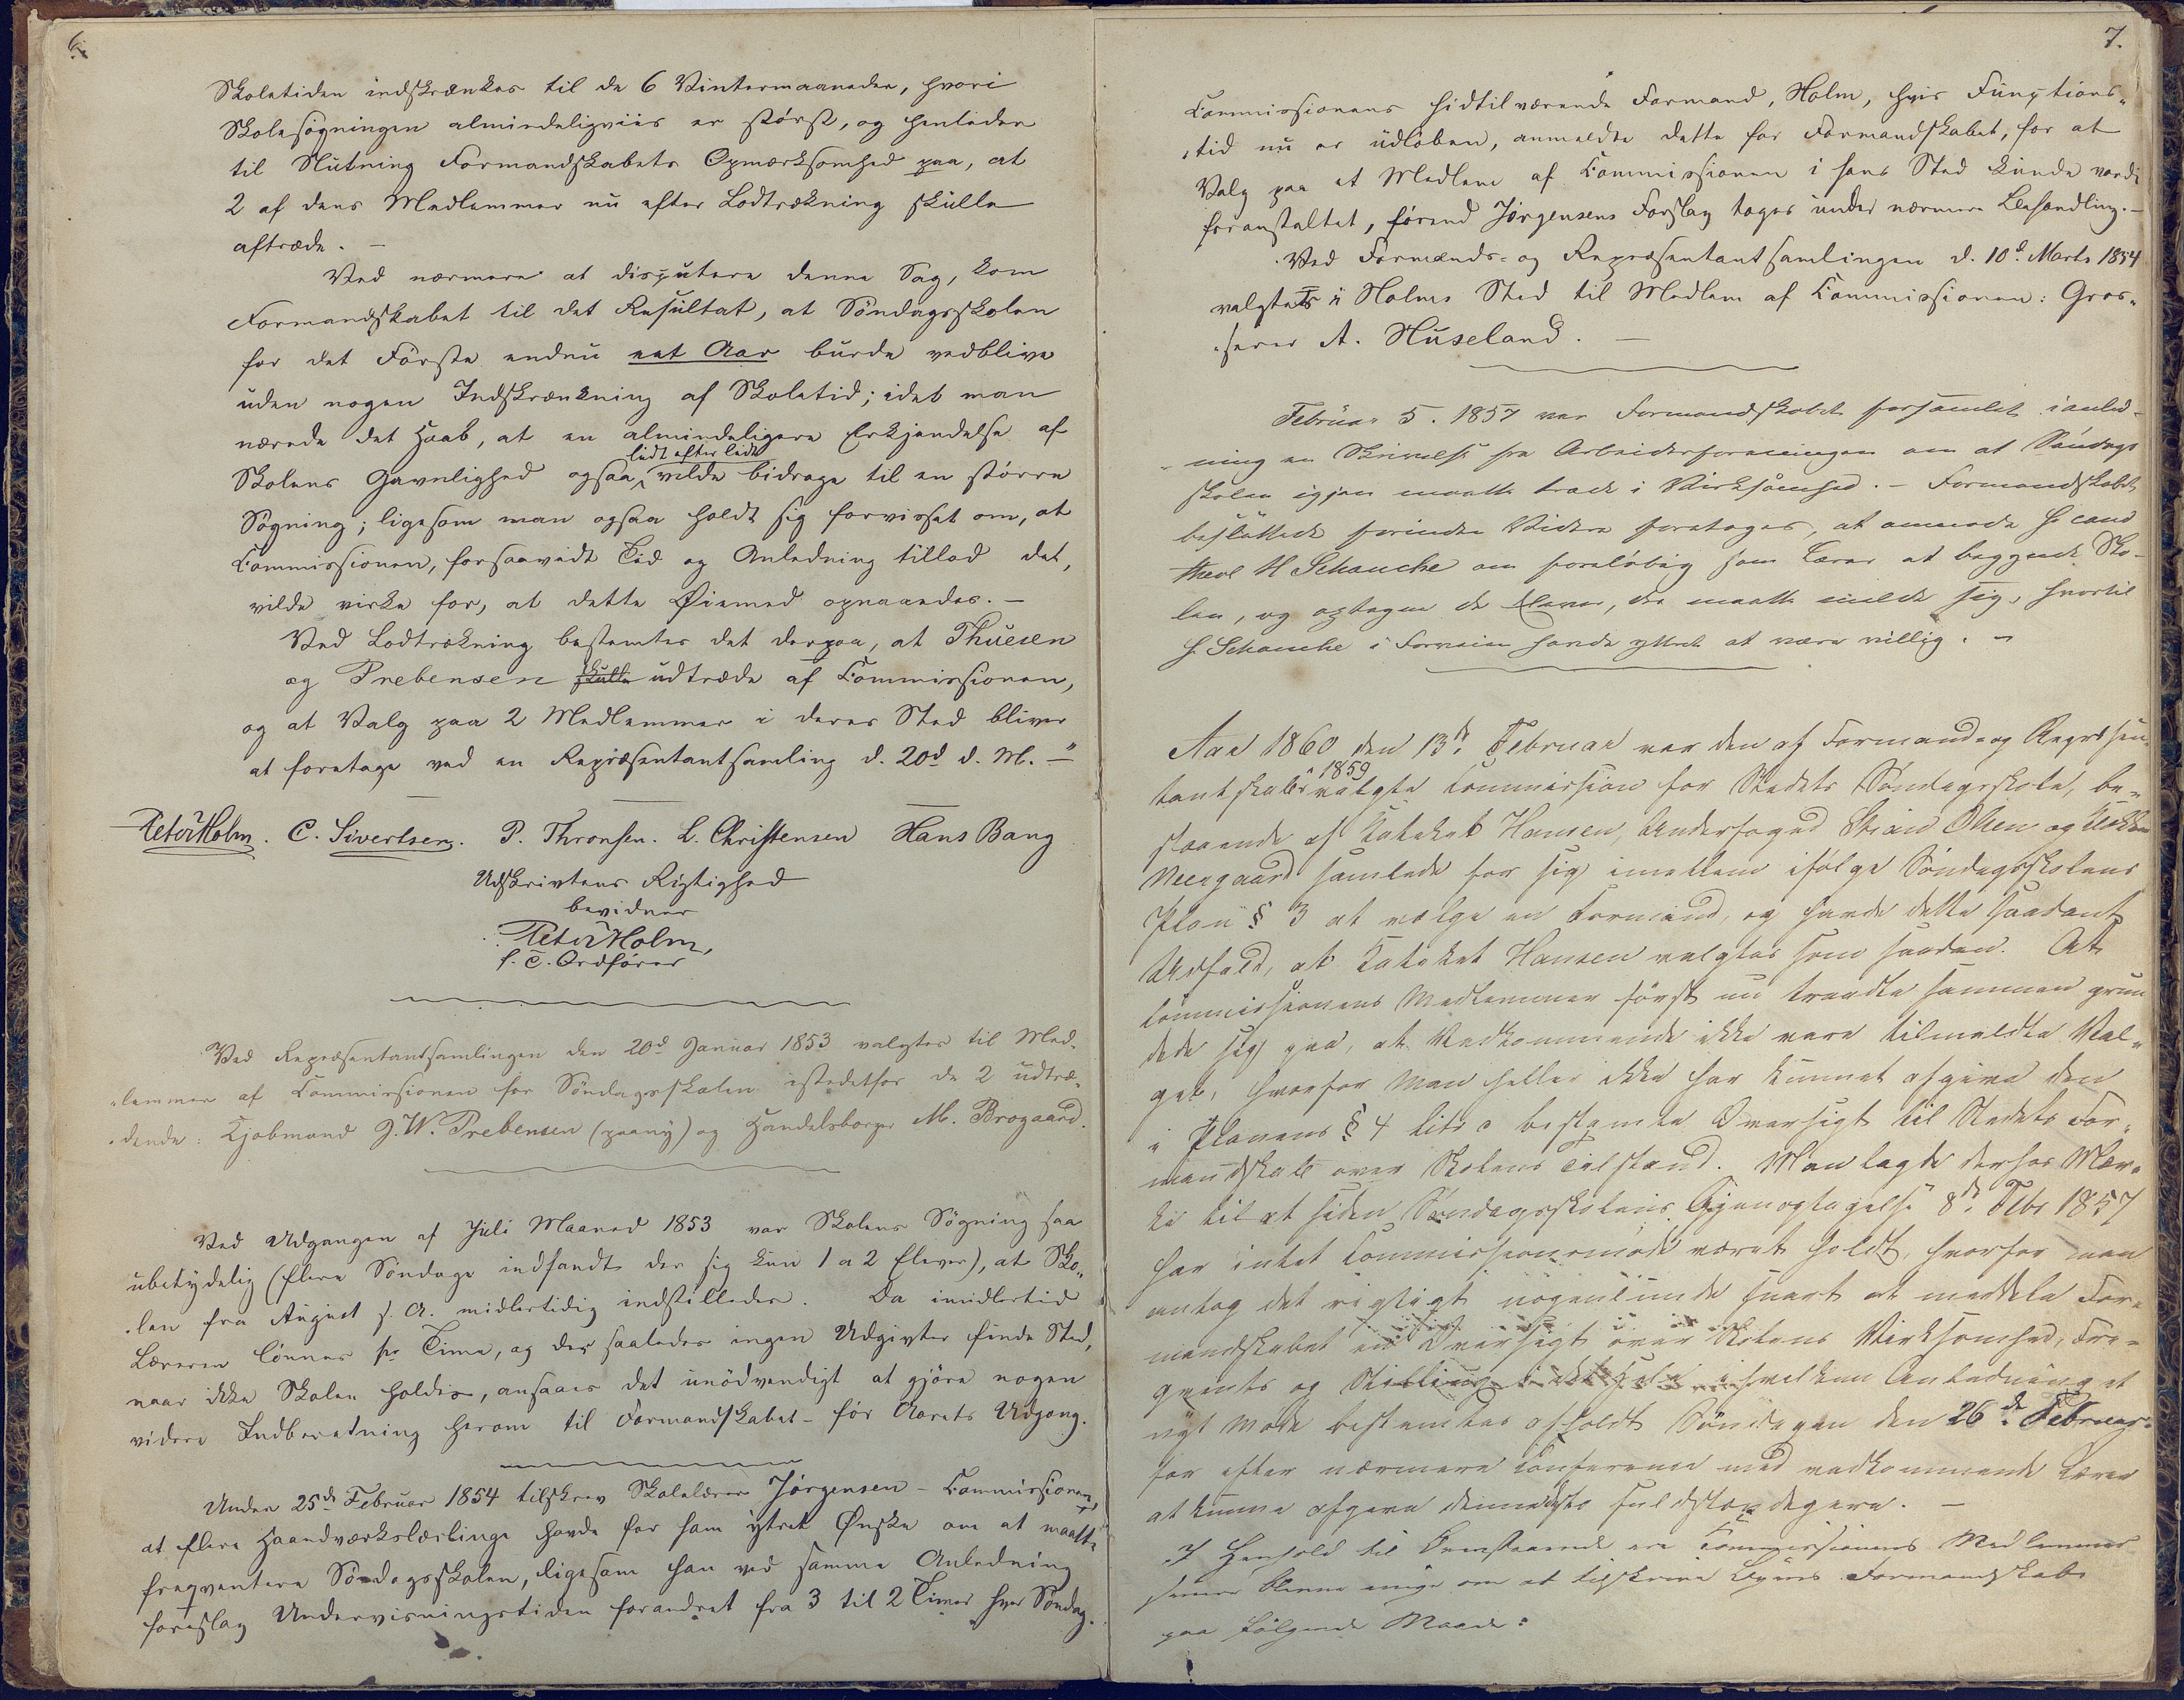 6.
Skoletiden indskrænkes til de 6 Vintermaaneder, hvori
Skolesøgningen almindeligviis er størst, og henleder
til Slutning Formandskabets Opmærksomhed paa, at
2 af dens Medlemmer nu efter Lodtrækning skulle
aftræde. —
Ved nærmere at disputere denne Sag, kom
Formandskabet til det Resultat, at Söndagsskolen
for det Förste endnu eet Aar burde vedblive
uden nogen Indskrænkning af Skoletid; idet man
nærede det Haab, at en almindeligere Erkjendelse af
lidt efter lidt
Skolens Gavnlighed ogsaa vilde bidrage til en större
Sögning; ligesom man ogsaa holdt sig forvisset om, at
Commissionen, forsaavidt Tid og Anledning tillod det,
vilde virke for, at dette Øiemed opnaaedes. —
Ved Lodtrækning bestemtes det derpaa, at Thuesen
og Prebensen skulle udtræde af Commissionen,
og at Valg paa 2 Medlemmer i deres Sted bliver
at foretage ved en Repræsentantsamling d. 20d d. M. —"
Peter Holm. C. Sivertsen. P. Thronsen. L. Christensen Hans Bang
Udskrivtens Rigtighed
bevidner
Peter Holm,
f. T. Ordförer
Ved Repræsentantsamlingen den 20d Januar 1853 valgtes til Med-
lemmer af Commissionen for Söndagsskolen istedetfor de 2 udtræ-
dende: Kjøbmand J. W. Prebensen (paany) og Handelsborger M. Brogaard.
Ved Udgangen af Juli Maaned 1853 var Skolens Sögning saa
ubetydelig (flere Söndage indfandt der sig kun 1 a 2 Elever), at Sko-
len fra August s. A. midlertidig indstilledes. Da imidlertid
Læreren lönnes pr Time, og der saaledes ingen Udgivter finde Sted,
naar ikke Skolen holdes, ansaaes det unödvendigt at gjöre nogen
videre Indberetning herom til Formandskabet för Aarets Udgang.
Under 25de Februar 1854 tilskrev Skolelærer Jörgensen Commissionen,
at flere Haandværkslærlinge havde for ham ytret Ønske om at maatte
freqventere Söndagsskolen, ligesom han ved samme Anledning
foreslog Undervisningstiden forandret fra 3 til 2 Timer hver Söndag.
7.
Commissionens hidtilværende Formand, Holm, hvis Functions-
tid nu er udløben, anmeldte dette for Formandskabet, for at
Valg paa et Medlem af Commissionen i hans Sted kunde vorde
foranstaltet, förend Jörgensens Forslag toges under nærmere Behandling. —
Ved Formands- og Repræsentantsamlingen d. 10d Marts 1854
valgtes i Holms Sted til Medlem af Commissionen: Gros-
serer A. Huseland. —
Februar 5. 1857 var Formandskabet forsamlet i anled-
ning en Skrivelse fra Arbeiderforeningen om at Söndags
skolen igjen maatte træde i Virksomhed. — Formandskabet
besluttede forinden Videre foretages, at anmode Hr cand
theol H Schanche om foreløbig som Lærer at begynde Sko-
len, og optagne de Elever, der maatte melde sig, hvortil
H. Schanche i Forveien havde yttret at være villig. —
Aar 1860 den 13de Februar var den af Formand- og Repræsen-
tantskabet 1859 valgte Commission for Stedets Söndagsskole, be-
staaende af Katekét Hansen, Underfoged Stian Olsen og Klokker
Neergaard samlede for sig imellem ifølge Söndagsskolens
Plan § 3 at vælge en Formand, og havde dette saadant
Udfald, at Kateket Hansen valgtes som saadan. At
Commissionens Medlemmer först nu traadte sammen grun
dede sig paa, at Vedkommende ikke vare tilmeldte Val-
get, hvorfor Man heller ikke har kunnet afgive den
i Planens § 4 litr c bestemte Oversigt til Stedets For-
mandskab over Skolens Tilstand. Man lagde derhos Mær-
ke til at siden Söndagsskolens Gjenoptagelse 8de Febr 1857
har intet Commissionsmöde været holdt, hvorfor man
antog det rigtigt nogenlunde snart at meddele For-
mandskabet en Oversigt over Skolens Virksomhed, Fre-
qvents og Stilling i hvilken Anledning et
nyt Møde bestemtes afholdt Söndagen den 26de Februar
for efter nærmere Conference med vedkommende Lærer
at kunne afgive denne fuldstændigere. —
I Henhold til Ovenstaaende ere Commissionens Medlemmer
senere blevne enige om at tilskrive Byens Formandskab
paa følgende Maade: